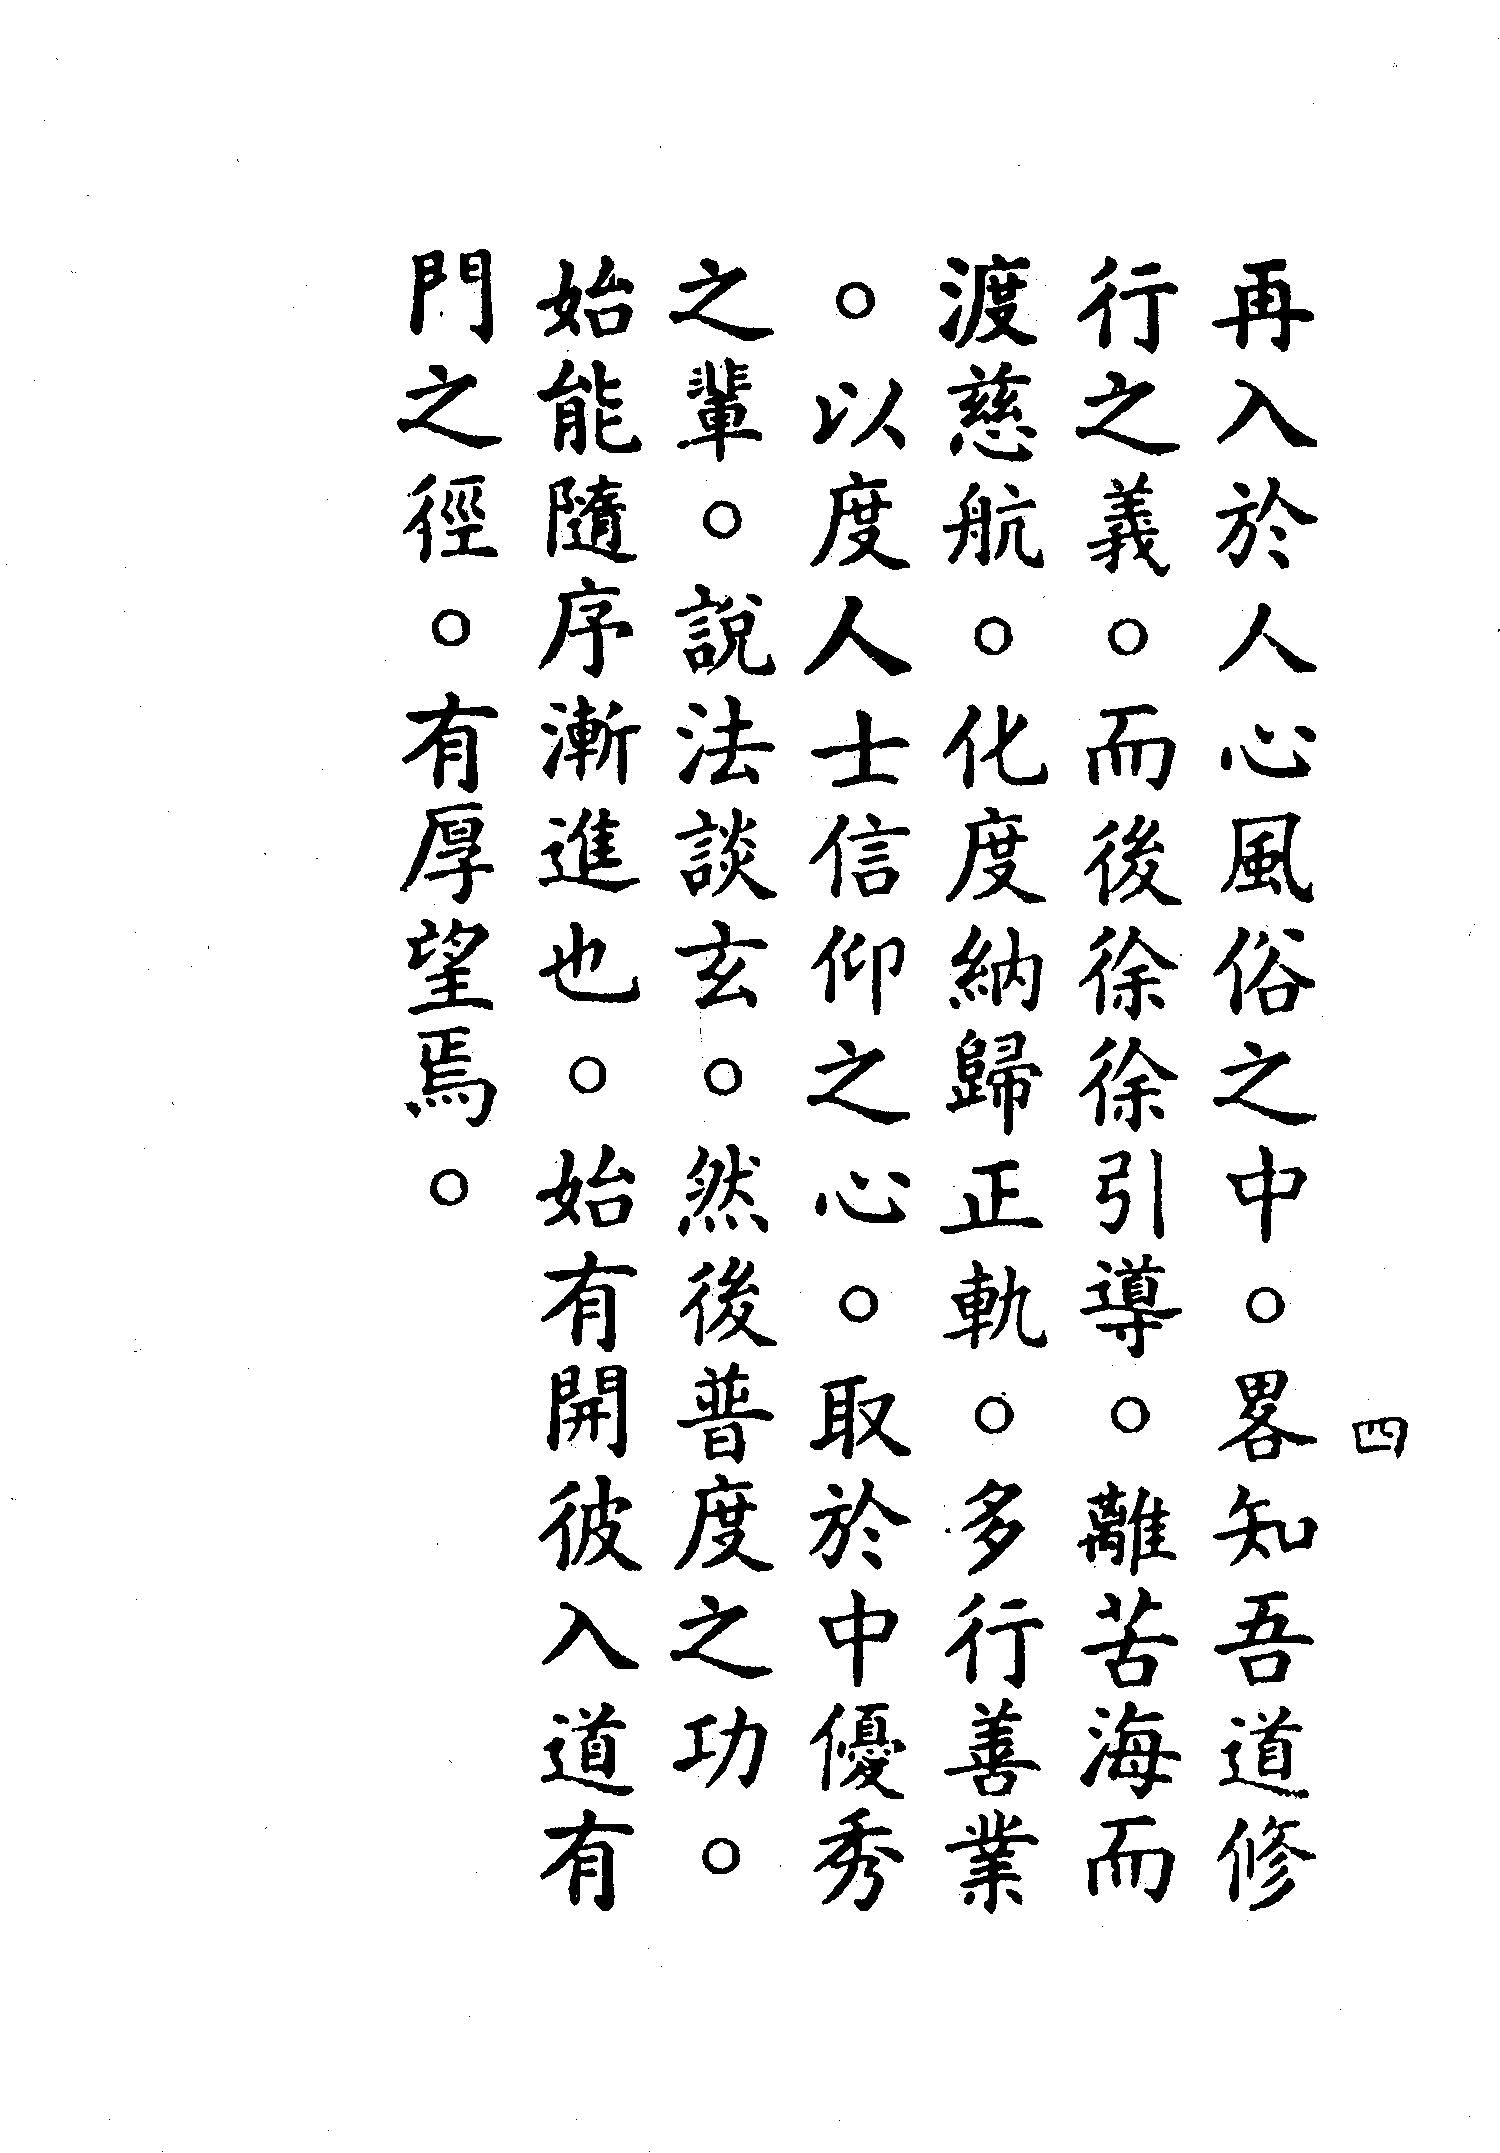 四
再入於人心風俗之中。畧知吾道修
行之義。而後徐徐引導。離苦海而
渡慈航。化度納歸正軌。多行善業
。以度人士信仰之心。取於中優秀
之輩。說法談玄。然後普度之功。
始能隨序漸進也。始有開彼入道有
門之徑。有厚望焉。